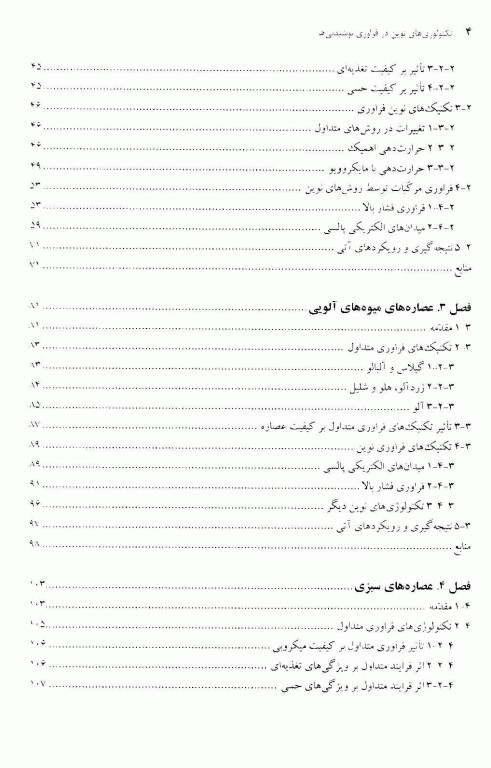 ۴ تکنولوژی‌های نوین در فراوری نوشیدنی‌ها
۲-۲-۳ تأثیر بر کیفیت تغذیه‌ای ۴۵
۲-۲-۴ تأثیر بر کیفیت حسی ۴۵
۲-۳ تکنیک‌های نوین فراوری ۴۶
۲-۳-۱ تغییرات در روش‌های متداول ۴۶
۲-۳-۲ حرارت‌دهی اهمیک ۴۶
۲-۳-۳ حرارت‌دهی با مایکروویو ۴۹
۲-۴ فراوری مرکبات توسط روش‌های نوین ۵۳
۲-۴-۱ فراوری فشار بالا ۵۳
۲-۴-۲ میدان‌های الکتریکی پالسی ۵۹
۲-۵ نتیجه‌گیری و رویکردهای آتی ۷۱
منابع ۷۱
فصل ۳. عصاره‌های میوه‌های آلویی ۸۱
۳-۱ مقدمه ۸۱
۳-۲ تکنیک‌های فراوری متداول ۸۳
۳-۲-۱ گیلاس و آلبالو ۸۳
۳-۲-۲ زردآلو، هلو و شلیل ۸۴
۳-۲-۳ آلو ۸۵
۳-۳ تأثیر تکنیک‌های فراوری متداول بر کیفیت عصاره ۸۷
۳-۴ تکنیک‌های فراوری نوین ۸۹
۳-۴-۱ میدان‌های الکتریکی پالسی ۸۹
۳-۴-۲ فراوری فشار بالا ۹۱
۳-۴-۳ تکنولوژی‌های نوین دیگر ۹۶
۳-۵ نتیجه‌گیری و رویکردهای آتی ۹۷
منابع ۹۸
فصل ۴. عصاره‌های سبزی ۱۰۳
۴-۱ مقدمه ۱۰۳
۴-۲ تکنولوژی‌های فراوری متداول ۱۰۵
۴-۲-۱ تأثیر فراوری متداول بر کیفیت میکروبی ۱۰۶
۴-۲-۲ اثر فرایند متداول بر ویژگی‌های تغذیه‌ای ۱۰۶
۴-۲-۳ اثر فرایند متداول بر ویژگی‌های حسی ۱۰۷